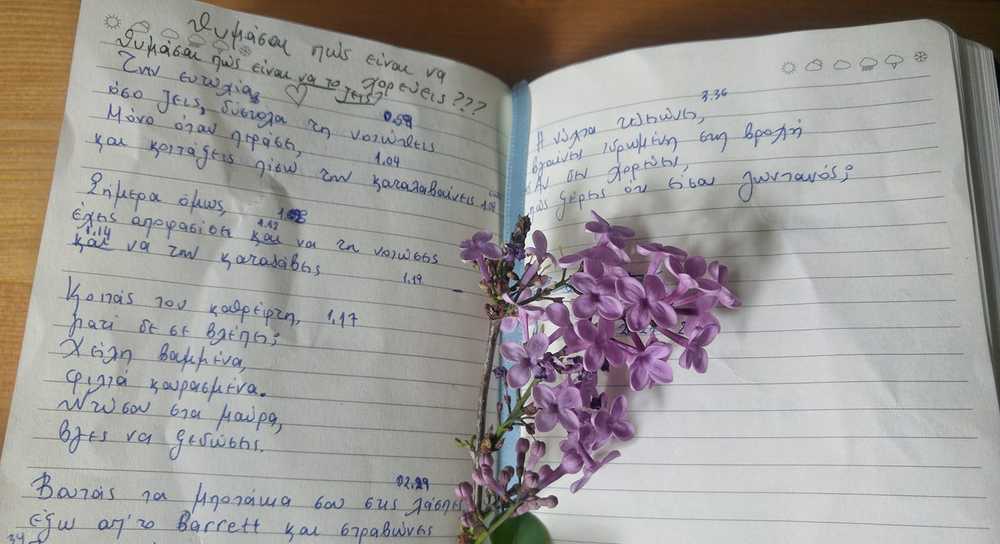 Θυμάσαι πώς είναι να
Θυμάσαι πώς είναι να το χορεύεις???
ζεις?
Την ευτυχία,
όσο ζεις, δύσκολα τη νοιώθεις
0.59
Μόνο όταν περάσει,
1.04
και κοιτάξεις πίσω την καταλαβαίνεις
1.08
Σήμερα όμως,
έχεις αποφασίσει και να τη νοιώσεις
1.12
1.14
και να την καταλάβεις
1.19
Κοιτάς τον καθρέφτη,
1.17
γιατί δε σε βλέπει;
Χείλη βαμμένα,
φιλιά κουρασμένα.
Ντύσου στα μαύρα,
βγες να ξεδώσεις.
02.29
Βουτάς τα μποτάκια σου στις λάσπες
έξω απ' το Barrett και στραβώνεις
34
3.36
Η νύχτα τελειώνει,
βγαίνεις ιδρωμένη στη βροχή
Αν δεν χορεύεις,
πώς ξέρεις ότι είσαι ζωντανός;